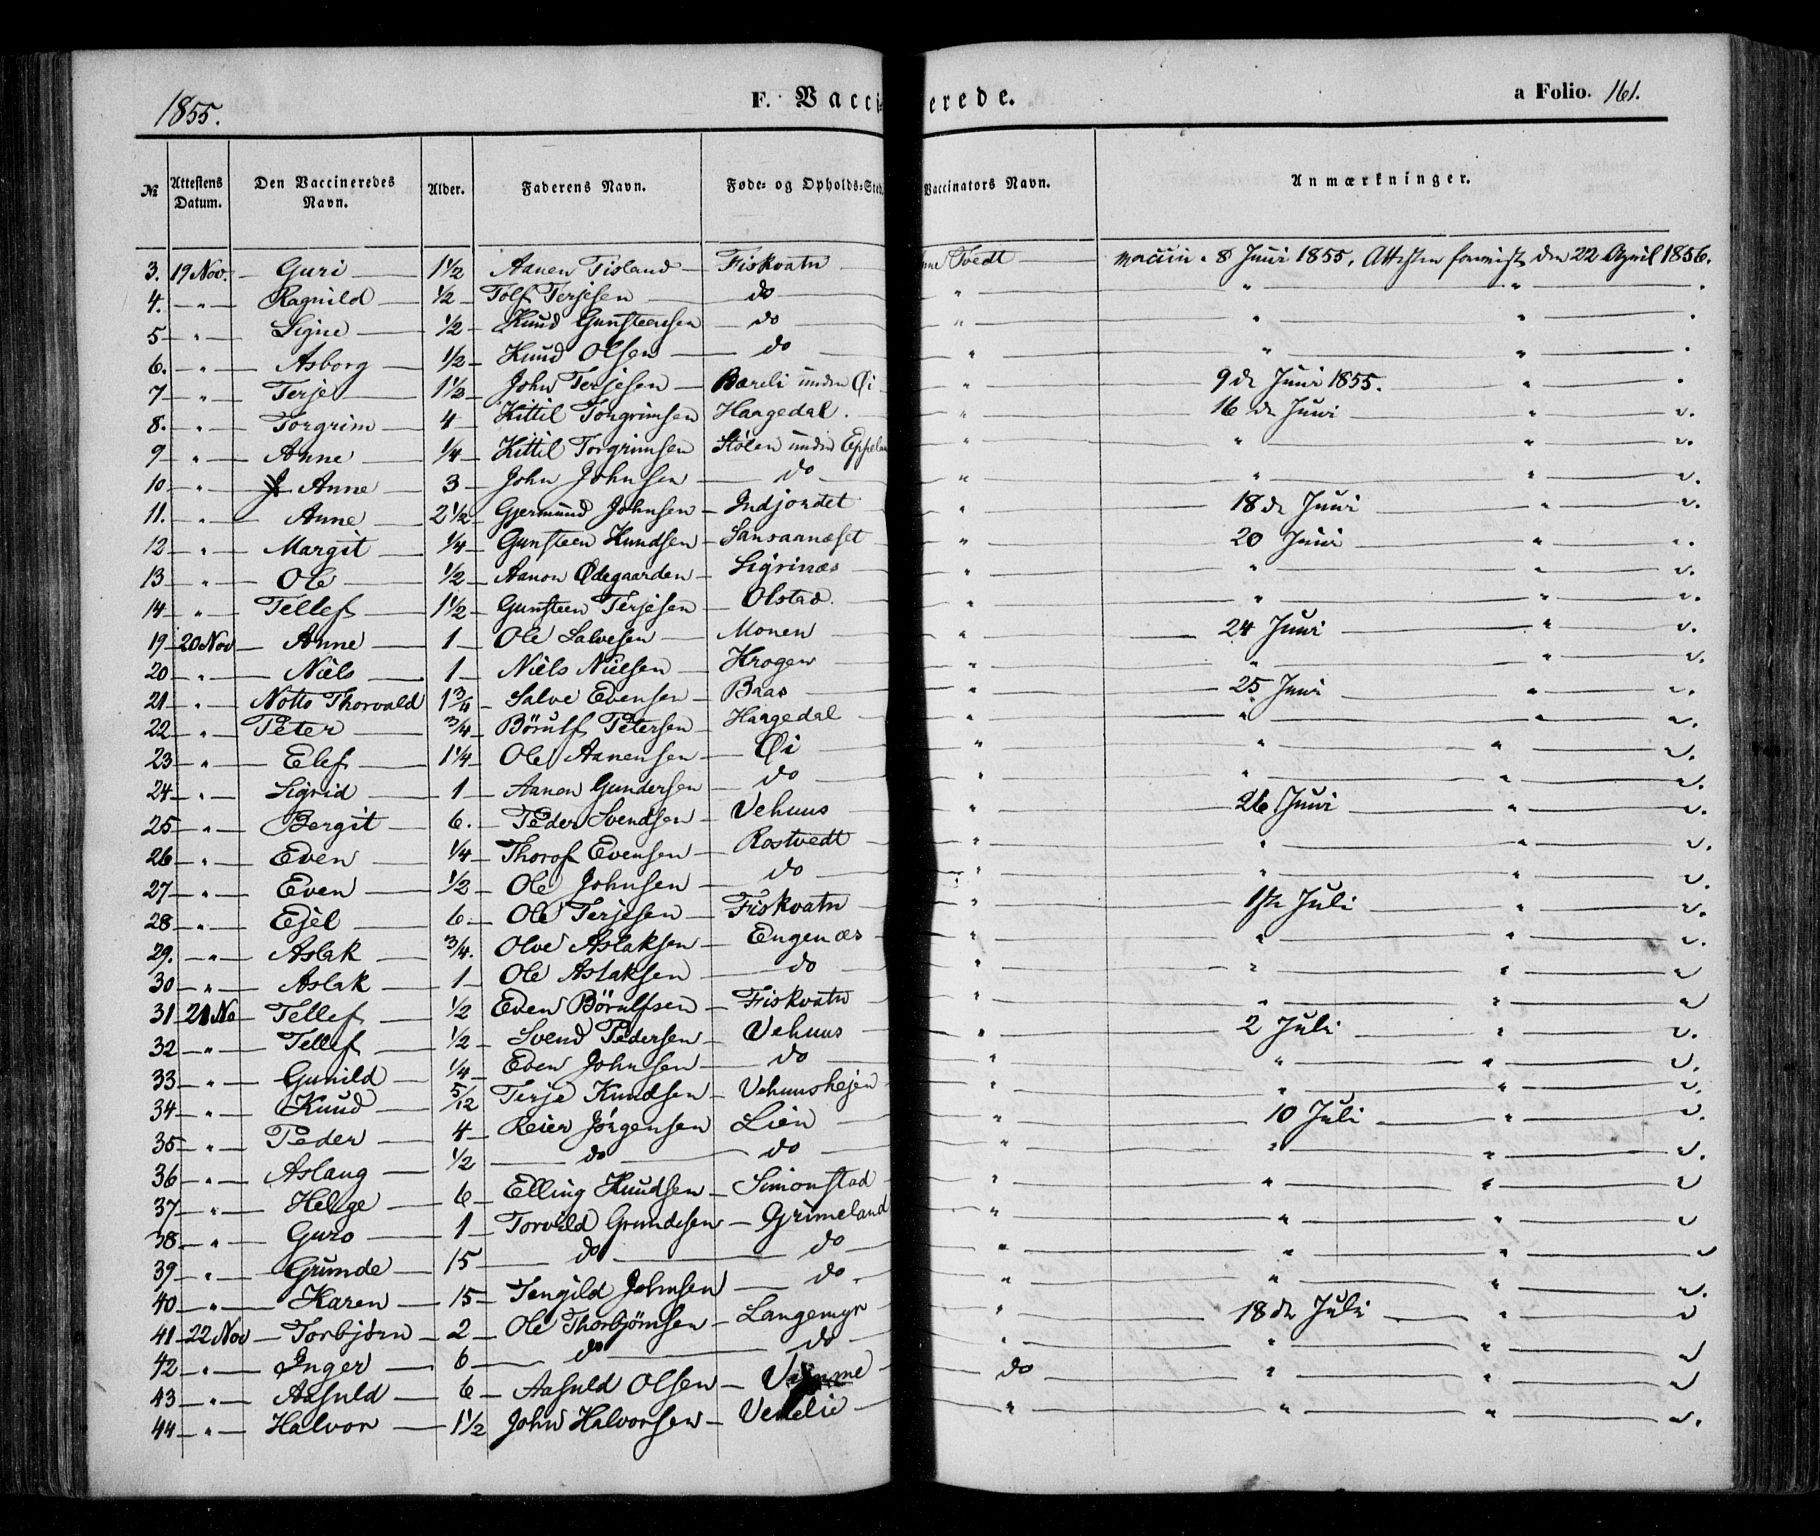 1855. F. Vacci erede. a Folio. 161.
№ Attestens Datum. Den Vaccineredes Navn. Alder. Faderens Navn. Føde- og Opholds-Sted Vaccinators Navn. Anmærkninger.
3. 19 Nov. Guri 1 1/2 Aanen Fisland Fiskvatn Tvedt 8 Juni 1855. Attesten den 22 April 1856.
4. " Ragnild 1/2 Tolf Terjesen do " " "
5 " Signe 1/2 Knud Gunsteensen do " " "
6. " Asborg 1/2 Knud Olsen do " " "
7 " Terje 1 1/2 John Terjesen Bæreli under Øi " 9 de Juni 1855. "
8. " Torgrim 4 Kittil Torgrimsen Haugedal. " 16 de Juni "
9 " Anne 1/4 Kittil Torgrimsen Stølen under " " "
10 " Anne 3 John Johnsen do " " "
11. " Anne 2 1/2 Gjermund Johnsen Indjordet " 18 de Juni "
12 " Margit 1/4 Gunsteen Knudsen Sansaarnæset " 20 Juni "
13 " Ole 1/2 Aanon Ødegaarden Sigrinæs " " "
14 " Tellef 1 1/2 Gunsteen Terjesen Olstad. " " "
19 20 Nov Anne 1 Ole Salvesen Monen " 24 Juni "
20 " Niels 1 Niels Nielsen Krogen " " "
21 " Notto Thorvald 1 3/4 Salve Evensen Baas " 25 Juni "
22 " Peter 3/4 Börulf Petersen Haugedal " " "
23 " Elef 1 1/4 Ole Aanensen Øi " " "
24 " Sigrid 1 Aanon Gundersen do " " "
25 " Bergit 6. Peder Svendsen Vehuus " 26 Juni "
26 " Even 1/4 Thorof Evensen Rostvedt " " "
27 " Even 1/2 Ole Johnsen do " "
28 " Ejel 6. Ole Terjesen Fiskvatn " 1ste Juli "
29. " Aslak 3/4. Olve Aslaksen Engenæs " " "
30 " Aslak 1 Ole Aslaksen do " " "
31 21 No Tellef 1/2 Even Börulfsen Fiskvatn " " "
32 " Tellef 1/2 Svend Pedersen Vehuus " 2 Juli "
33 " Gunild 1/4 Even Johnsen do " " "
34 " Knud 5/12 Terje Knudsen Vehuushejen " " "
35 " Peder 4 Reier Jörgensen Lien " 10 Juli "
36 " Aslaug 1/2 do do " " "
37 " Helge 6 Elling Knudsen Simonstad " " "
38 " Guro 1 Torvild Grundesen Grimeland " " "
39 " Grunde 15 do do " " "
40 " Karen 15 Tengild Johnsen do. " " "
41 22 Nov Torbjörn 2 Ole Thorbjörnsen Langemyr " 18 de Juli "
42 " Inger 6 do do " " "
43 " Aasuld 6 Aasuld Olsen do " "
44 " Halvor 1 1/2 John Halvorsen " " "